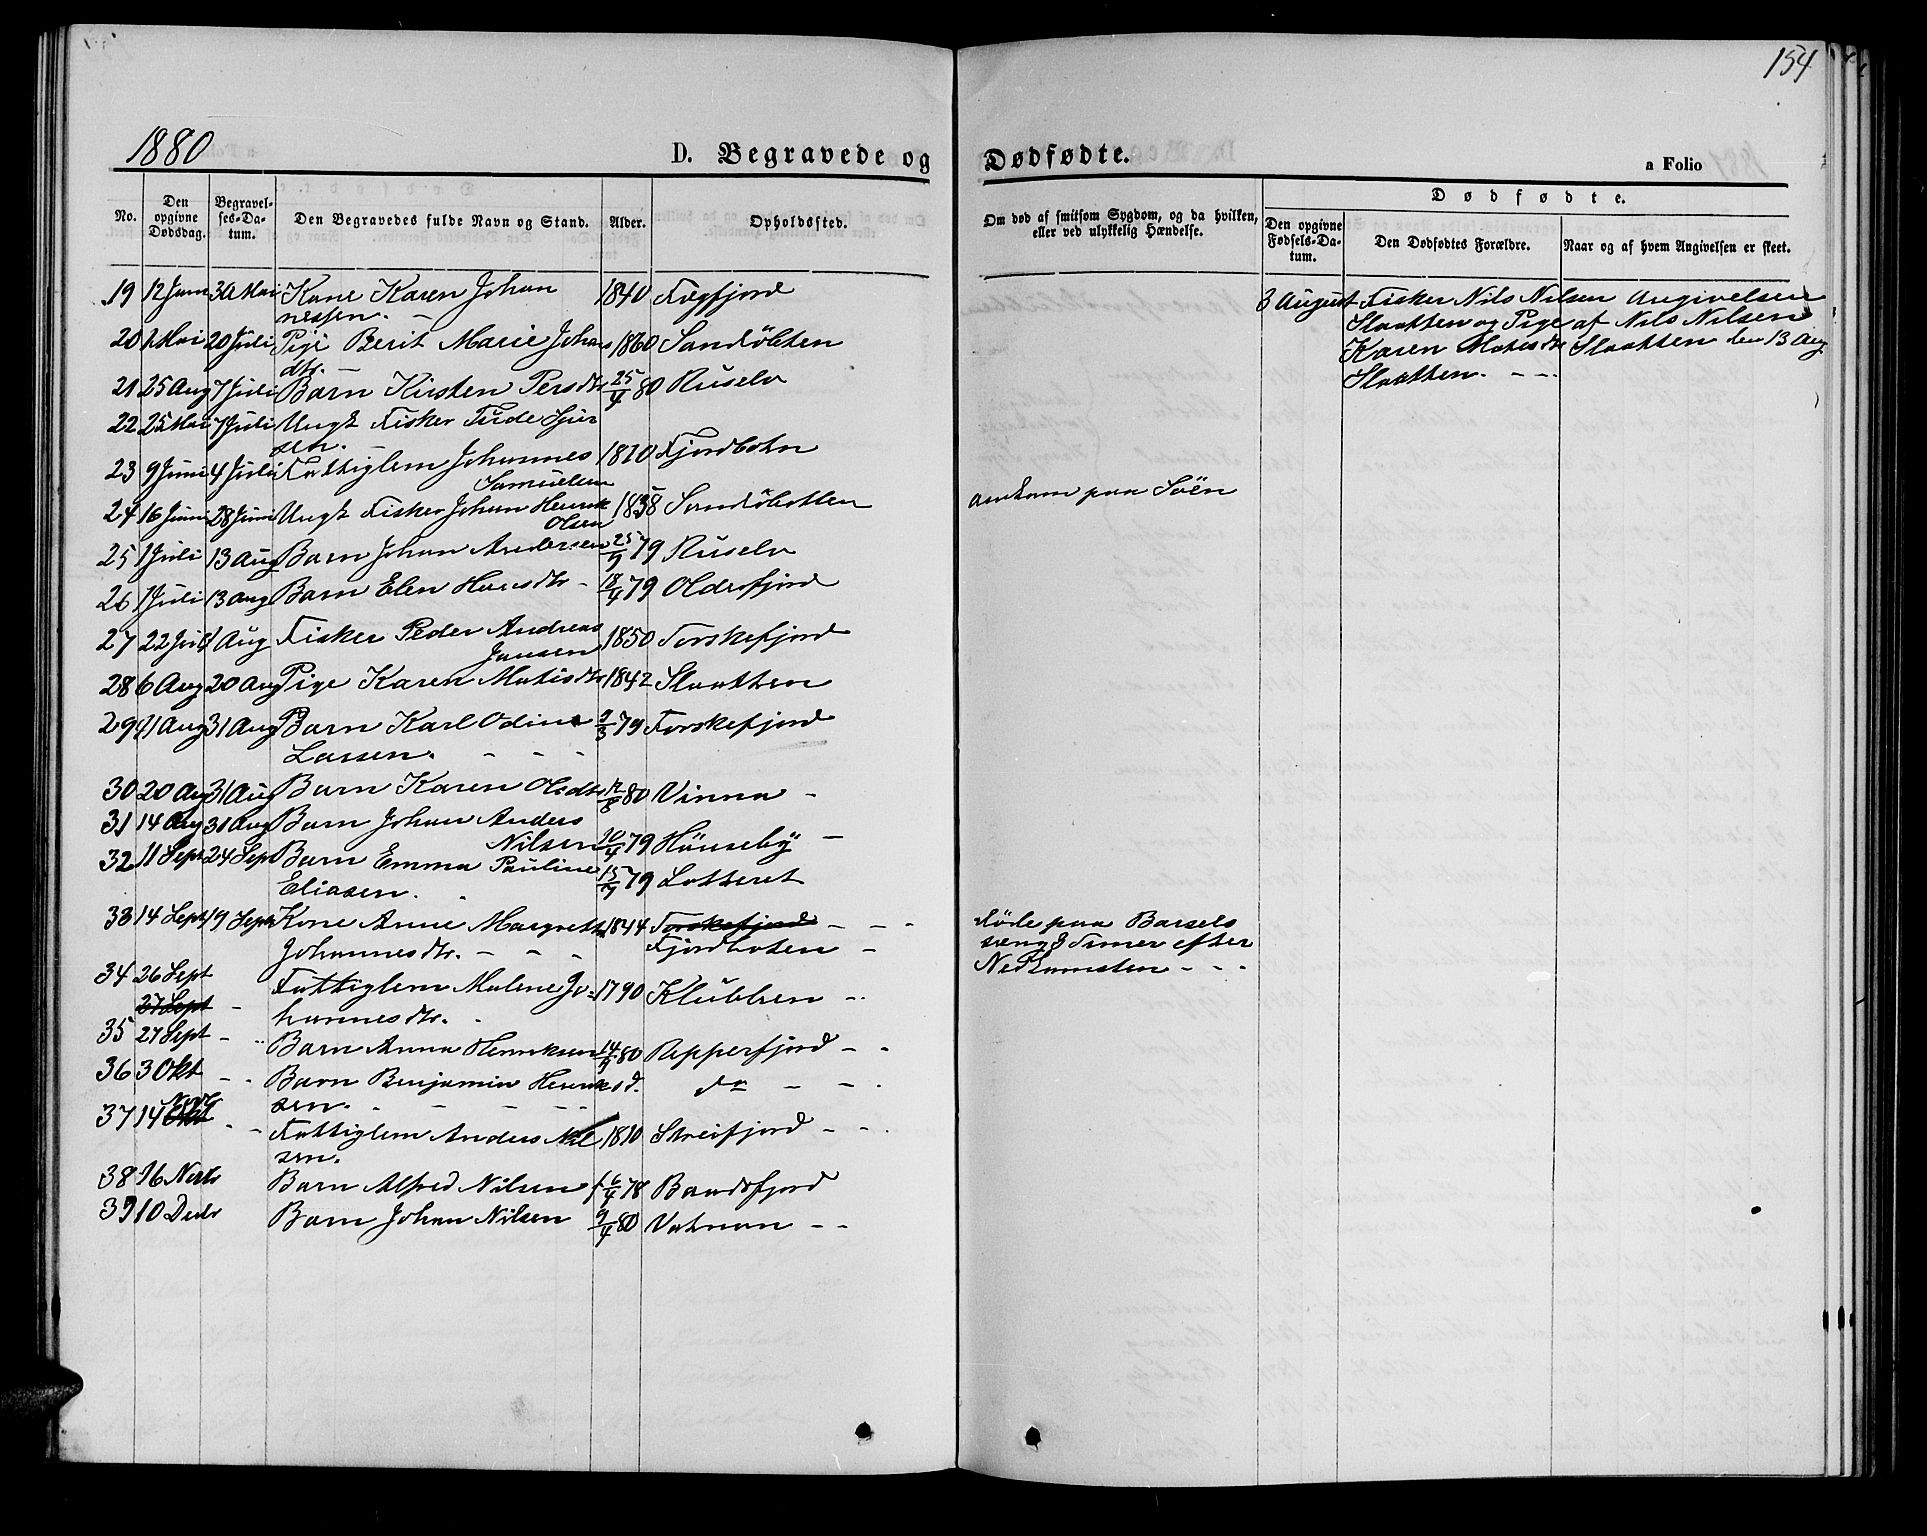 154
1880
D. Begravede og Dødfødte.
a Folio
No.
Den opgivne Dødsdag.
Begravelses-Datum.
Den Begravedes fulde Navn og Stand.
Alder.
Opholdssted.
Om død af smitsom Sygdom, og da hvilken, eller ved ulykkelig Hændelse.
Dødfødte.
Den opgivne Fødsels-Datum.
Den Dødfødtes Forældre.
Naar og af hvem Angivelsen er skeet.
19 12 Juni 30 Mai Kone Karen Johan 1840
nessen. -
20 Mai 20 Juli Pige Berit Marie Johans 1860 Sandöbten
dtr. -
21 25 Aug 7 Juli Barn Kirsten Persdtr 25/4 80 Ruselv
22 25 Mai 7 Juli Ungk Fisker
sen.
23 9 Juni 4 Juli Fattiglem Johannes 1810 Fjordbotn
Samuelsen
24 16 Juni 28 Juni Ungk Fisker Johan Henrik 1838 Sandöbotten omkom paa Söen
Olsen
25 1 Juli 13 Aug Barn Johan Andersen 25/9 79 Ruselv
26 1 Juli 13 Aug Barn Elen Hansdtr - 18/4 79 Oldersfjord
27 22 Juli 1 Aug Fisker Peder Andreas 1850 Torskefjord
Jansen
28 6 Aug 20 Aug Pige Karen Matisdtr 1842 Slaatten
29 11 Aug 31 Aug Barn Karl Odin 9/3 79 Torskefjord
Larsen. - - -
30 20 Aug 31 Aug Barn Karen Olsdtr 12/8 80 Vinna -
31 14 Aug 31 Aug Barn Johan Anders
Nilsen 20/4 79 Hönseby -
32 11 Sept 24 Sept Barn Emma Pauline
Eliasen. 15/7 79 Lotteret
33 14 Sept 19 Sept Kone Anne Margrethe 1844 Torskefjord - - - döde paa Barsels
Johannesdtr. - - - Fjordboten - seng 8 Timer efter
Nedkomsten - - -
34 26 Sept Fattiglem Malene Jo- 1790 Klubben -
27 Sept - hannesdtr.
35 27 Sept - Barn Anna Henriksen 14/9 80 Repperfjord - -
36 3 Okt - - Barn Benjamin Henrik s d. do - -
sen. - - -
37 14 Okt Novbr - - Fattiglem Anders Nil 1810 Skreifjord - -
sen.
38 16 Novbr Barn Alfred Nilsen 6/4 78
39 10 Decbr Barn Johan Nilsen 9/4 80 - -
8 August Fisker Nils Nilsen Angivelsen
Slaatten og Pige af Nils Nilsen
Karen Matisdtr Slaatten den 13 Aug
Slaatten. - - -